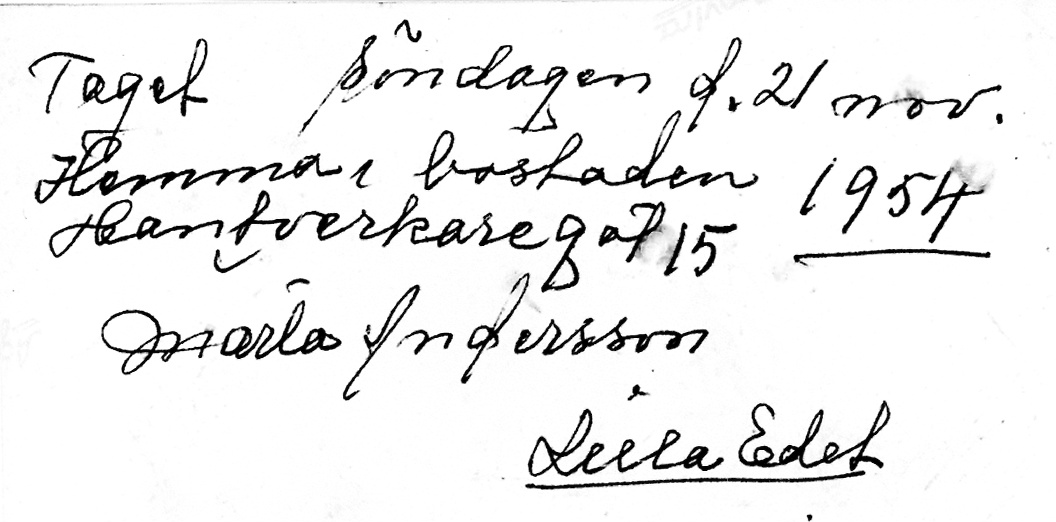 Taget söndagen d. 21 nov.
Hemma i bostaden 1954
Hantverkaregat 15
Märta Andersson
Lilla Edet